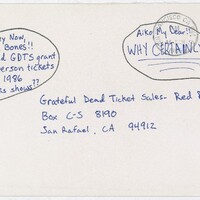 ey Now,
Bones!!
d GDTS grant
erson tickets
1986
s shows??
Aiko My Dear!
WHY CERTAINLY
Grateful Dead Ticket Sales - Red R
Box C-S 8190
San Rafael, CA 94912